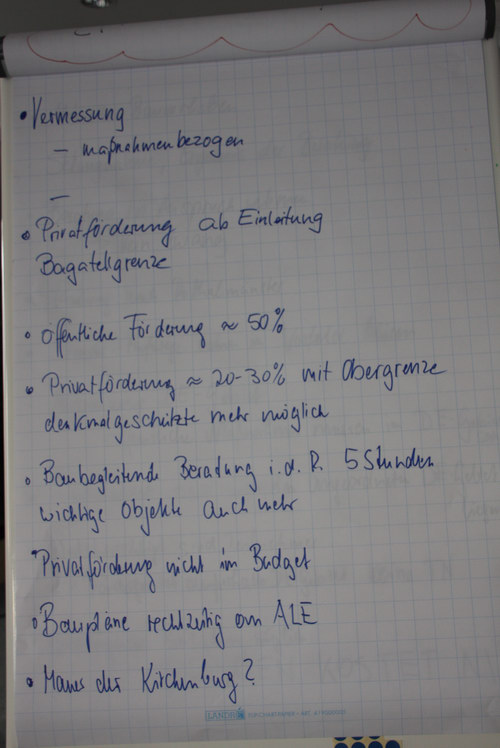 • Vermessung
– maßnahmenbezogen
–
• Privatförderung ab Einleitung
Bagatellgrenze
• öffentliche Förderung ≈ 50%
• Privatförderung ≈ 20-30% mit Obergrenze
denkmalgeschützte mehr möglich
• Baubegleitende Beratung i.d.R. 5 Stunden
wichtige Objekte auch mehr
• Privatförderung nicht im Budget
• Baupläne rechtzeitig an ALE
• Mauer der Kirchenburg?
LANDRÉ